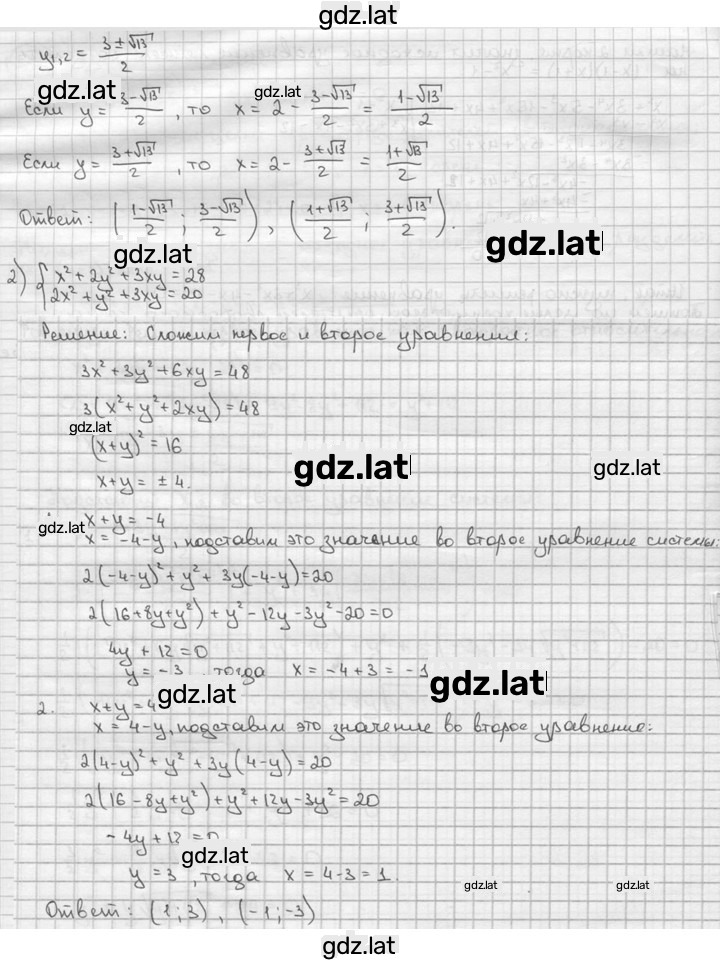 gdz.lat
y₁,₂ = (3±√13)/2
gdz.lat
gdz.lat
Если y = (3-√13)/2, то x = 2 - (3-√13)/2 = (1-√13)/2
Если y = (3+√13)/2, то x = 2 - (3+√13)/2 = (1+√13)/2
Ответ: ((1-√13)/2 ; (3-√13)/2), ((1+√13)/2 ; (3+√13)/2).
gdz.lat
gdz.lat
2) { x² + 2y² + 3xy = 28
2x² + y² + 3xy = 20
Решение: Сложим первое и второе уравнения:
3x² + 3y² + 6xy = 48
3(x² + y² + 2xy) = 48
gdz.lat
(x+y)² = 16
gdz.lat
gdz.lat
x+y = ± 4.
gdz.lat
x+y = -4
x = -4-y, подставим это значение во второе уравнение системы:
2(-4-y)² + y² + 3y(-4-y) = 20
2(16+8y+y²) + y² - 12y - 3y² - 20 = 0
4y + 12 = 0
y = -3, тогда x = -4+3 = -1
gdz.lat
gdz.lat
2. x+y = 4
x = 4-y, подставим это значение во второе уравнение:
2(4-y)² + y² + 3y(4-y) = 20
2(16-8y+y²) + y² + 12y - 3y² = 20
-4y + 12 = 0
gdz.lat
y = 3, тогда x = 4-3 = 1.
gdz.lat
gdz.lat
Ответ: (1;3), (-1;-3)
gdz.lat